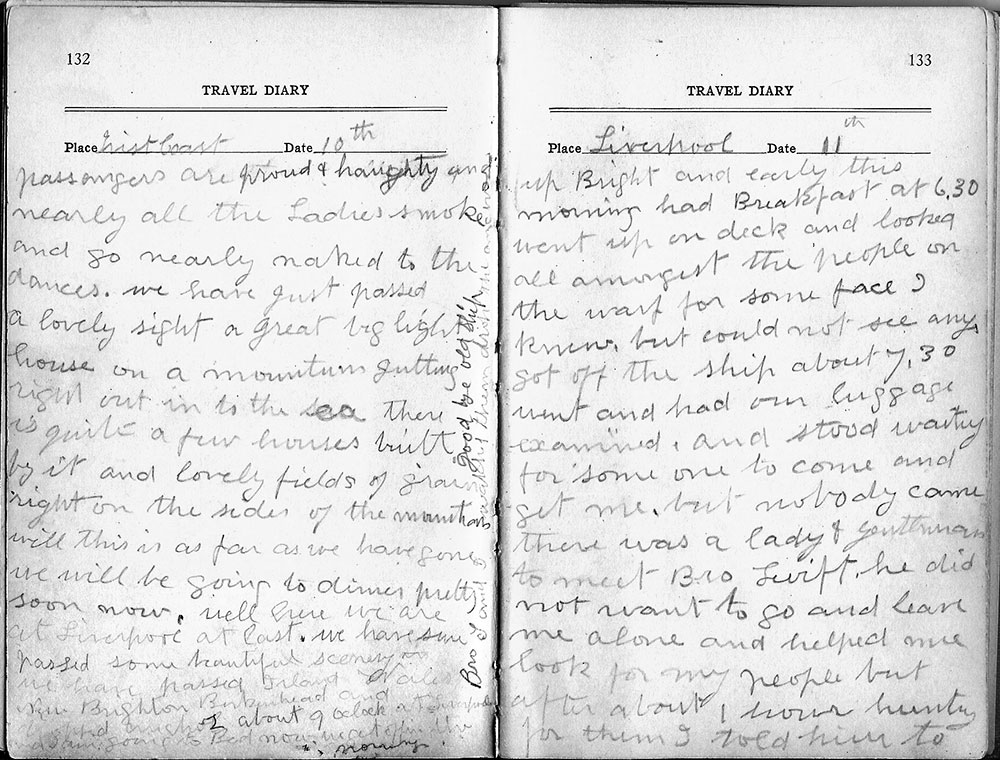 132
TRAVEL DIARY
Place Irist Coast Date 10th
passongers are proud & haughty and
nearly all the Ladies smoke
and go nearly naked to the
dances. we have just passed
a lovely sight a great big light
house on a mountian jutting
right out in to the sea there
is quite a few houses built
by it and lovely fields of grain
right on the sides of the mountians
will this is as far as we have gone
we will be going to dinner pretty
soon now, well here we are
at Liverpool at last. we have sure
passed some beautiful scenery
we have passed Wales
New Brighton Birkenhead and
about 9 oclock at Liverpool
going to Bed now
morning.
Bro S and I good bye old ship
133
TRAVEL DIARY
Place Liverpool Date 11th
up Bright and early this
morning had Breakfast at 6.30
went up on deck and looked
all amongest the people on
the warf for some face I
knew, but could not see any,
got off the ship about 7,30
went and had our luggage
examined, and stood waiting
for some one to come and
get me. but nobody came
there was a lady & gentleman
to meet Bro Swift, he did
not want to go and leave
me alone and helped me
look for my people but
after about 1 hour hunting
for them I told him to